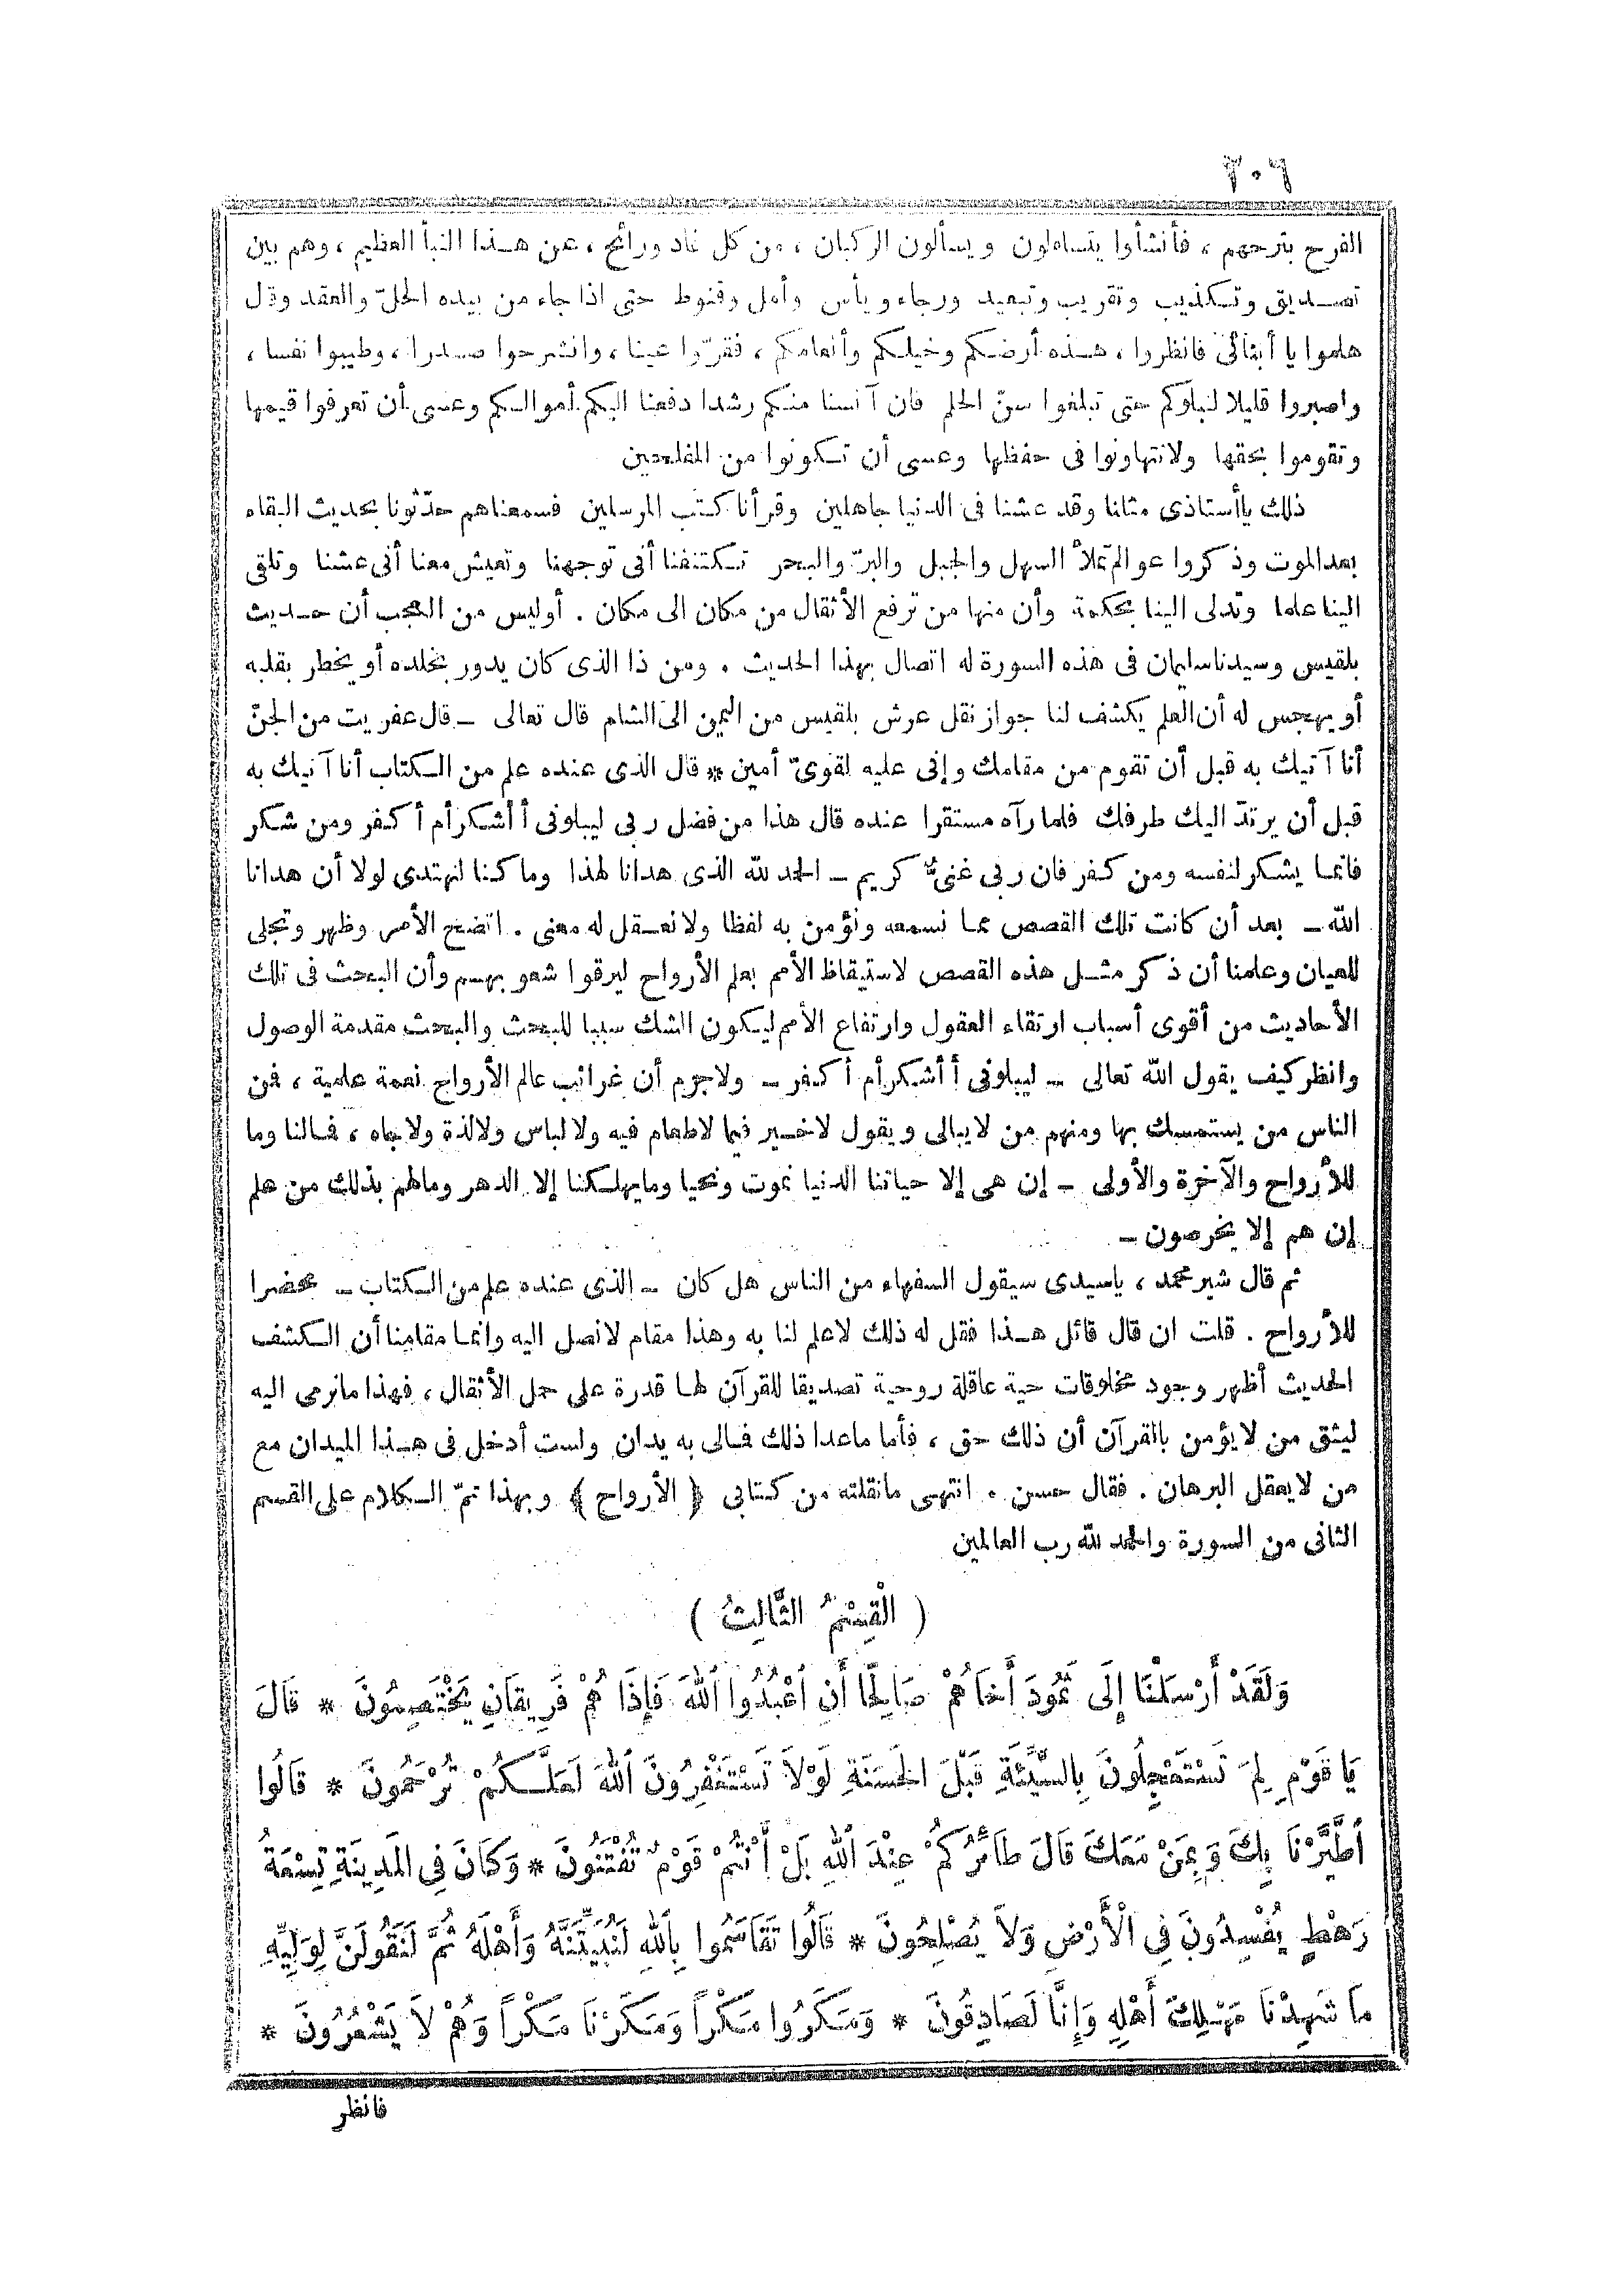 ٢٠٦
الفرح بترحهم ، فأنشأوا يتساءلون ويسألون الركبان ، من كل غاد ورائح ، عن هــذا النبأ العظيم ، وهم بين
تصــديق وتـكذيب وتقريب وتبعيد ورجاء ويأس وأمل وقنوط حتى اذا جاء من بيده الحلّ والعقد وقال
هلموا يا أبنائى فانظروا ، هــذه أرضكم وخيلـكم وأنعامكم ، فقرّوا عينا ، وانشرحوا صــدرا ، وطيبوا نفسا ،
واصبروا قليلا لنبلوكم حتى تبلغوا سنّ الحلم فان آنسنا منكم رشدا دفعنا اليكم أموالـكم وعسى أن تعرفوا قيمها
وتقوموا بحقها ولاتتهاونوا فى حفظها وعسى أن تـكونوا من المفلحين
ذلك ياأستاذى مثلنا وقد عشنا فى الدنيا جاهلين وقرأنا كتب المرسلين فسمعناهم حدّثونا بحديث البقاء
بعدالموت وذكروا عوالم تملأ السهل والجبل والبرّ والبحر تـكتنفنا أنى توجهنا وتعيش معنا أنى عشنا وتلقى
الينا علما وتدلى الينا بحكمة وأن منها من ترفع الأثقال من مكان الى مكان . أوليس من العجب أن حــديث
بلقيس وسيدناسليمان فى هذه السورة له اتصال بهذا الحديث . ومن ذا الذى كان يدور بخلده أو يخطر بقلبه
أو يهجس له أن العلم يكشف لنا جواز نقل عرش بلقيس من اليمن الى الشام قال تعالى ــ قال عفريت من الجنّ
أنا آتيك به قبل أن تقوم من مقامك وإنى عليه لقوىّ أمين * قال الذى عنده علم من الـكتاب أنا آتيك به
قبل أن يرتدّ اليك طرفك فلما رآه مستقرا عنده قال هذا من فضل ربى ليبلونى أأشكر أم أكفر ومن شكر
فانما يشكر لنفسه ومن كفر فان ربى غنىّ كريم ــ الحمد لله الذى هدانا لهذا وما كنا لنهتدى لولا أن هدانا
الله ــ بعد أن كانت تلك القصص مما نسمعه ونؤمن به لفظا ولانعــقل له معنى . اتضح الأمر وظهر وتجلى
للعيان وعلمنا أن ذكر مثــل هذه القصص لاستيقاظ الأمم بعلم الأرواح ليرقوا شعوبهــم وأن البحث فى تلك
الأحاديث من أقوى أسباب ارتقاء العقول وارتفاع الأمم ليـكون الشك سببا للبحث والبحث مقدمة الوصول
وانظر كيف يقول الله تعالى ــ ليبلونى أأشكر أم أكفر ــ ولاجرم أن غرائب عالم الأرواح نعمة علمية ، فمن
الناس من يستمسك بها ومنهم من لايبالى ويقول لاخــير فيما لاطعام فيه ولا لباس ولالذة ولاجاه ، فــالنا وما
للأرواح والآخرة والأولى ــ إن هى إلا حياتنا الدنيا نموت ونحيا ومايهلـكنا إلا الدهر ومالهم بذلك من علم
إن هم إلا يخرصون ــ
ثم قال شير محمد ، ياسيدى سيقول السفهاء من الناس هل كان ــ الذى عنده علم من الـكتاب ــ محضرا
للأرواح . قلت ان قال قائل هــذا فقل له ذلك لاعلم لنا به وهذا مقام لانصل اليه وانمـا مقامنا أن الـكشف
الحديث أظهر وجود مخلوقات حية عاقلة روحية تصديقا للقرآن لهــا قدرة على حمل الأثقال ، فهذا مانرمى اليه
ليثق من لايؤمن بالقرآن أن ذلك حق ، فأما ماعدا ذلك فــالى به يدان ولست أدخل فى هــذا الميدان مع
من لايعقل البرهان . فقال حسن . انتهى مانقلته من كتابى ﴿ الأرواح ﴾ وبهذا تمّ الـكلام على القسم
الثانى من السورة والحمد لله رب العالمين
( الْقِسْمُ الثَّالِثُ )
وَلَقَدْ أَرْسَلْنَا إِلَى ثَمُودَ أَخَاهُمْ صَالِحًا أَنِ ٱعْبُدُوا ٱللهَ فَإِذَا هُمْ فَرِيقَانِ يَخْتَصِمُونَ * قَالَ
يَا قَوْمِ لِمَ تَسْتَعْجِلُونَ بِالسَّيِّئَةِ قَبْلَ الْحَسَنَةِ لَوْلاَ تَسْتَغْفِرُونَ ٱللهَ لَعَلَّـكُمْ تُرْحَمُونَ * قَالُوا
ٱطَّيَّرْنَا بِكَ وَبِمَنْ مَعَكَ قَالَ طَائِرُكُمْ عِنْدَ ٱللهِ بَلْ أَنْتُمْ قَوْمٌ تُفْتَنُونَ * وَكَانَ فِى الْمَدِينَةِ تِسْعَةُ
رَهْطٍ يُفْسِدُونَ فِى الْأَرْضِ وَلاَ يُصْلِحُونَ * قَالُوا تَقَاسَمُوا بِٱللهِ لَنُبَيِّتَنَّهُ وَأَهْلَهُ ثُمَّ لَنَقُولَنَّ لِوَلِيِّهِ
مَا شَهِدْنَا مَهْلِكَ أَهْلِهِ وَإِنَّا لَصَادِقُونَ * وَمَكَرُوا مَكْراً وَمَكَرْنَا مَكْراً وَهُمْ لاَ يَشْعُرُونَ *
فانظر